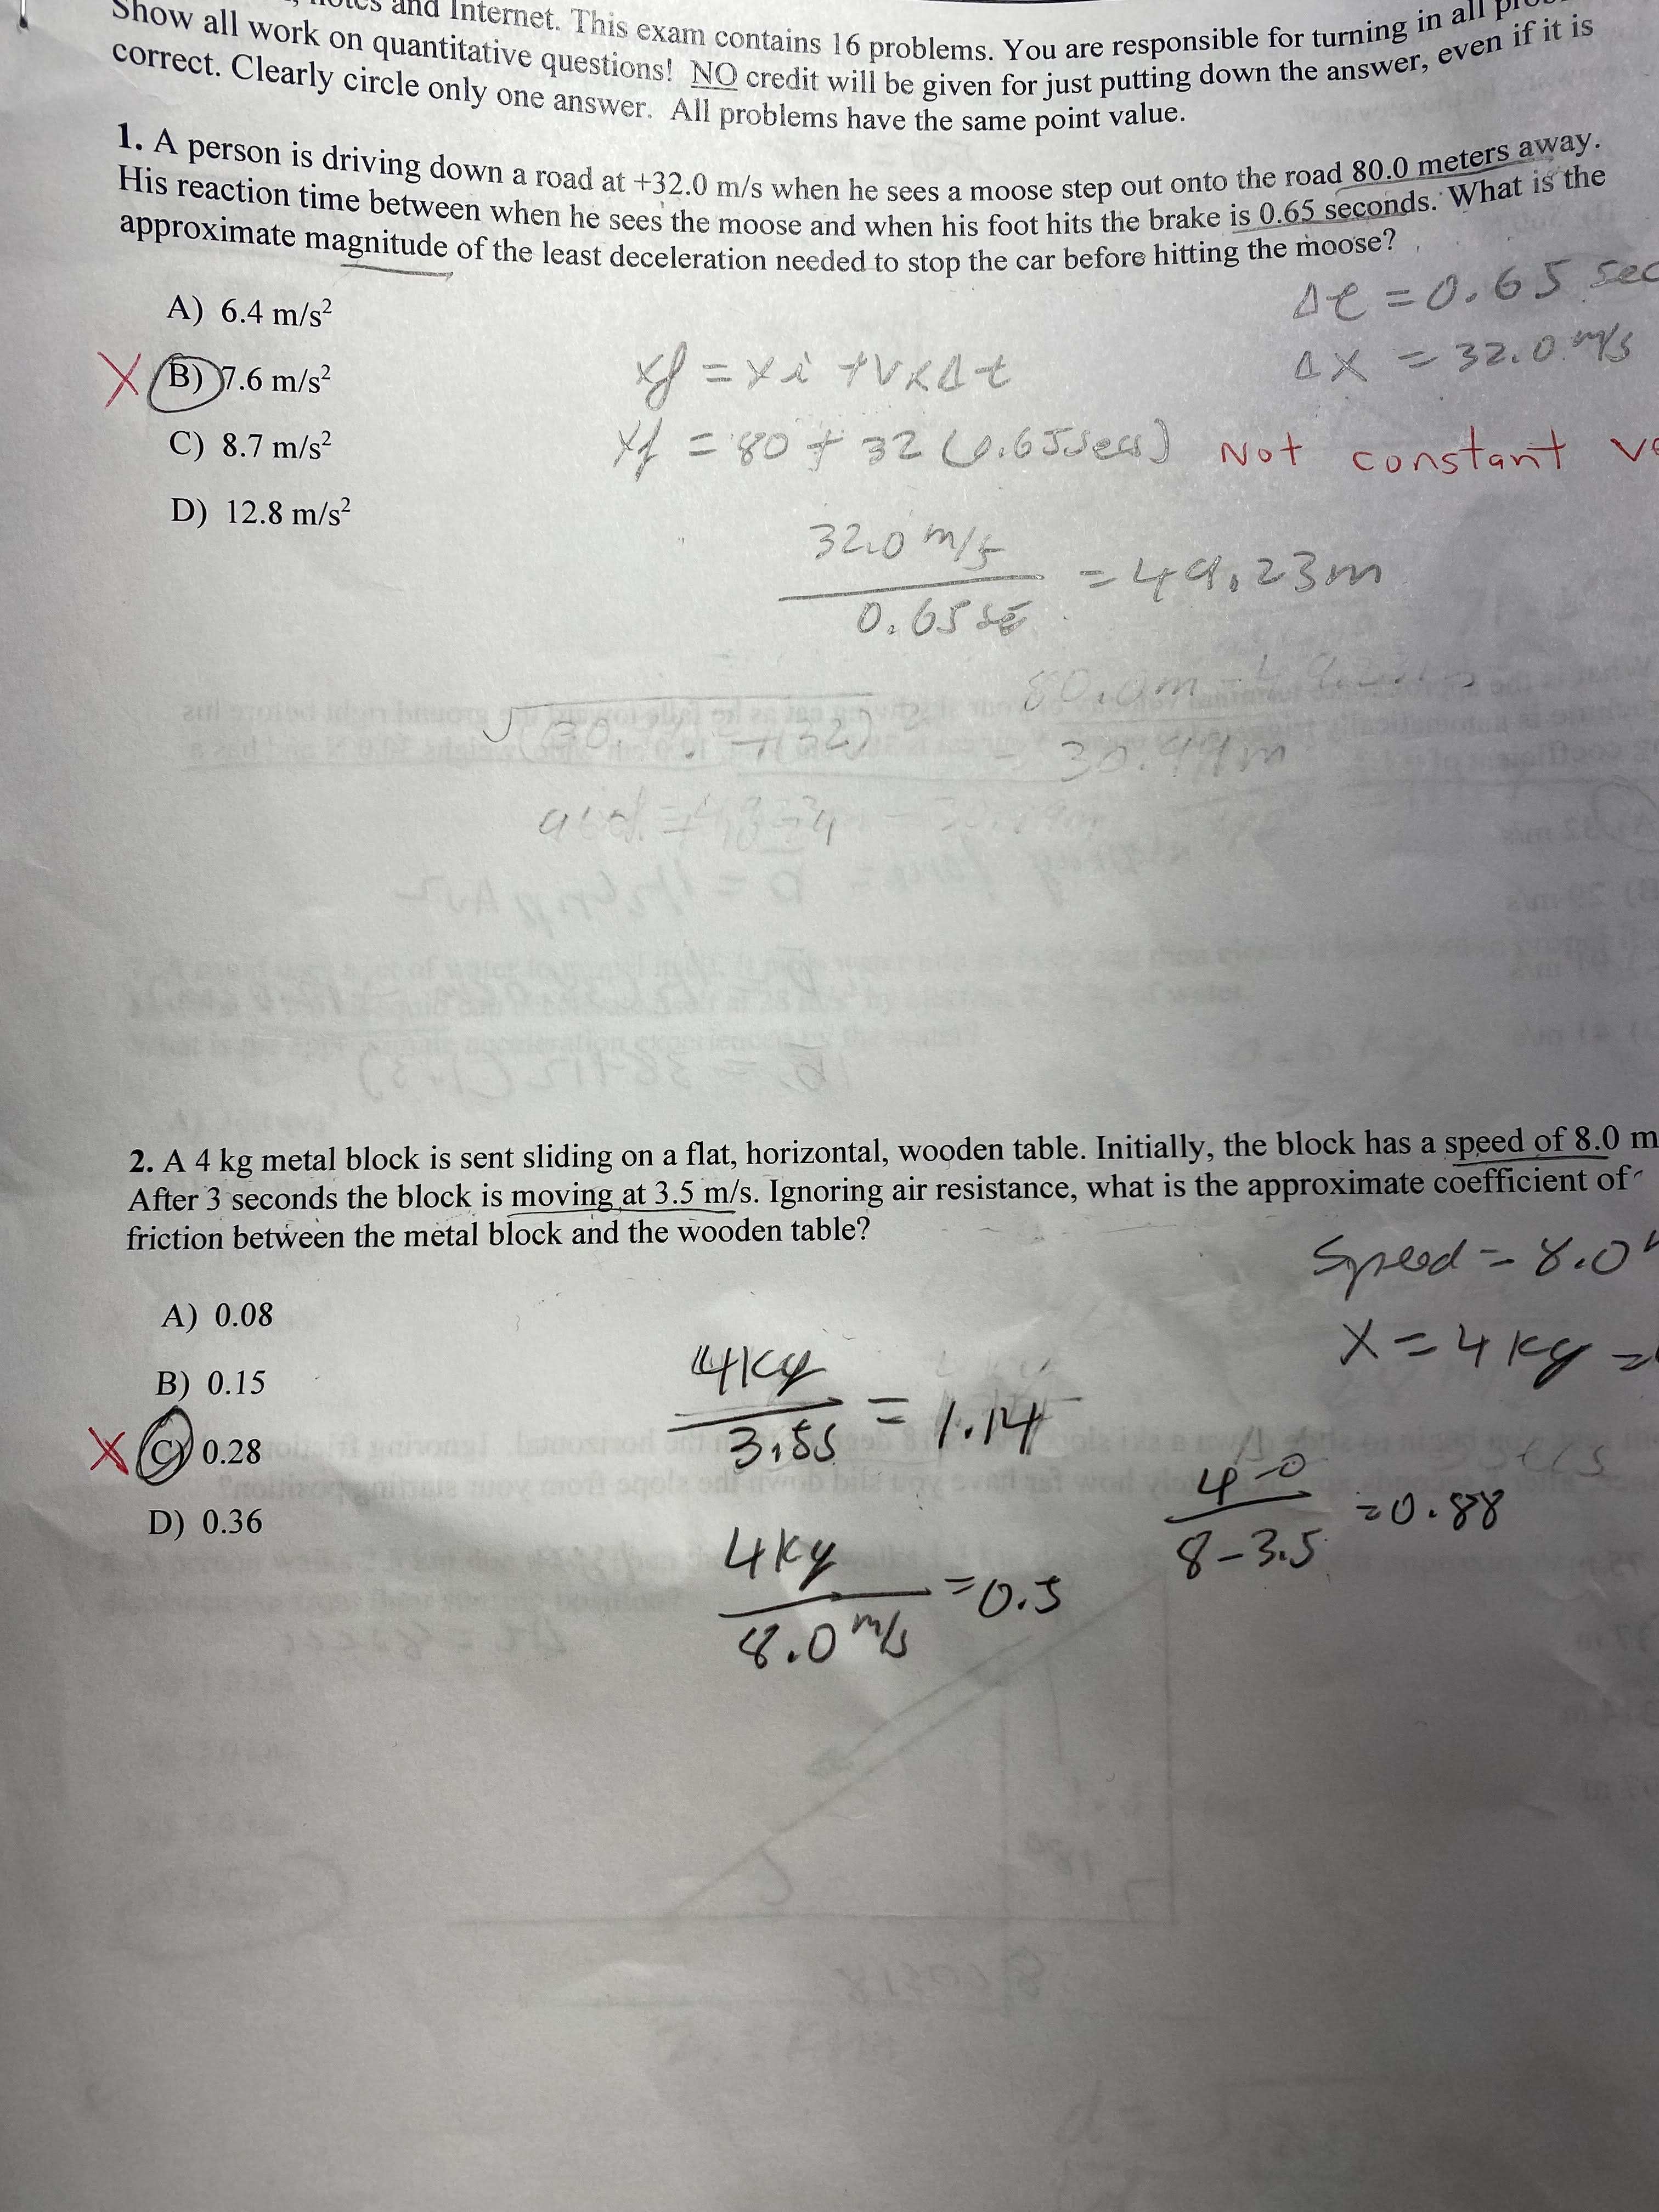 notes and Internet. This exam contains 16 problems. You are responsible for turning in all
Show all work on quantitative questions! NO credit will be given for just putting down the answer, even if it is
correct. Clearly circle only one answer. All problems have the same point value.
1. A person is driving down a road at +32.0 m/s when he sees a moose step out onto the road 80.0 meters away.
His reaction time between when he sees the moose and when his foot hits the brake is 0.65 seconds. What is the
approximate magnitude of the least deceleration needed to stop the car before hitting the moose?
Δt = 0.65 sec
A) 6.4 m/s²
Δx = 32.0 m/s
X B) 7.6 m/s²
xf = xi + vxΔt
C) 8.7 m/s²
xf = 80 + 32 (0.65secs) Not constant
D) 12.8 m/s²
32.0 m/s
= 49.23m
0.65 se
80.0m - 49.23m
= 30.99m
2. A 4 kg metal block is sent sliding on a flat, horizontal, wooden table. Initially, the block has a speed of 8.0 m
After 3 seconds the block is moving at 3.5 m/s. Ignoring air resistance, what is the approximate coefficient of
friction between the metal block and the wooden table?
Speed = 8.0
A) 0.08
X = 4 kg =
B) 0.15
4kg
= 1.14
X C) 0.28
4-0
= 0.88
8-3.5
D) 0.36
4kg
= 0.5
8.0 m/s